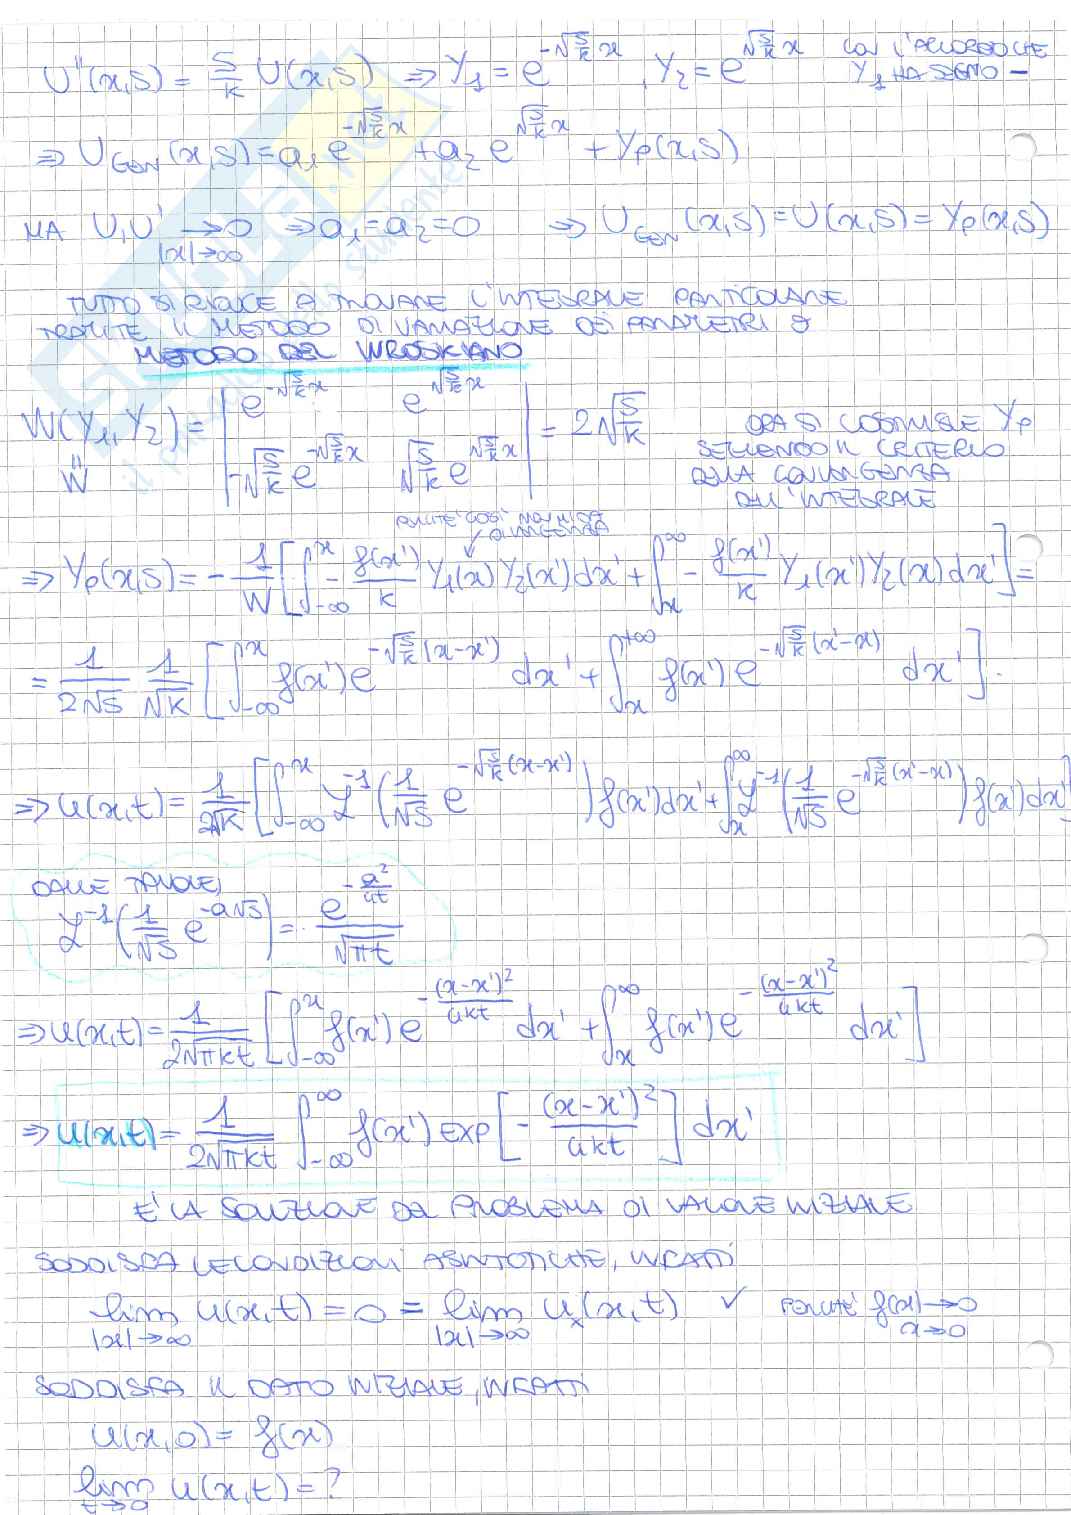 U''(x,s) = s/k U(x,s) ⇒ Y₁ = e^{-√(s/k) x} , Y₂ = e^{√(s/k) x} CON L'ACCORDO CHE
Y₁ HA SEGNO −
⇒ U_GEN (x,s) = a₁ e^{-√(s/k) x} + a₂ e^{√(s/k) x} + Yp(x,s)
MA U,U' → 0 |x|→∞ ⇒ a₁=a₂=0 ⇒ U_GEN (x,s) = U(x,s) = Yp(x,s)
TUTTO SI RIDUCE A TROVARE L'INTEGRALE PARTICOLARE
TRAMITE IL METODO DI VARIAZIONE DEI PARAMETRI O
METODO DEL WROSKIANO
W(Y₁,Y₂) = | e^{-√(s/k) x} e^{√(s/k) x} | = 2√(s/k) ORA SI COSTRUISCE Yp
W | -√(s/k) e^{-√(s/k) x} √(s/k) e^{√(s/k) x} | SEGUENDO IL CRITERIO
DELLA CONVERGENZA
DELL'INTEGRALE
⇒ Yp(x,s) = - 1/W [ ∫_{-∞}^{x} - f(x')/k Y₁(x) Y₂(x') dx' + ∫_{x}^{∞} - f(x')/k Y₁(x') Y₂(x) dx' ] =
= 1/(2√s) 1/√k [ ∫_{-∞}^{x} f(x') e^{-√(s/k) (x-x')} dx' + ∫_{x}^{+∞} f(x') e^{-√(s/k) (x'-x)} dx' ].
⇒ u(x,t) = 1/(2√k) [ ∫_{-∞}^{x} ℒ⁻¹( 1/√s e^{-√(s/k) (x-x')} ) f(x') dx' + ∫_{x}^{∞} ℒ⁻¹( 1/√s e^{-√(s/k) (x'-x)} ) f(x') dx' ]
DALLE TAVOLE,
ℒ⁻¹( 1/√s e^{-a√s} ) = e^{-a²/4t} / √(πt)
⇒ u(x,t) = 1/(2√(πkt)) [ ∫_{-∞}^{x} f(x') e^{-(x-x')²/4kt} dx' + ∫_{x}^{∞} f(x') e^{-(x-x')²/4kt} dx' ]
⇒ u(x,t) = 1/(2√(πkt)) ∫_{-∞}^{∞} f(x') EXP [ - (x-x')²/4kt ] dx'
E' LA SOLUZIONE DEL PROBLEMA DI VALORE INIZIALE
SODDISFA LE CONDIZIONI ASINTOTICHE, INFATTI
lim |x|→∞ u(x,t) = 0 = lim |x|→∞ u_x(x,t) ✓ POICHE' f(x) → 0 x→0
SODDISFA IL DATO INIZIALE, INFATTI
u(x,0) = f(x)
lim t→0 u(x,t) = ?